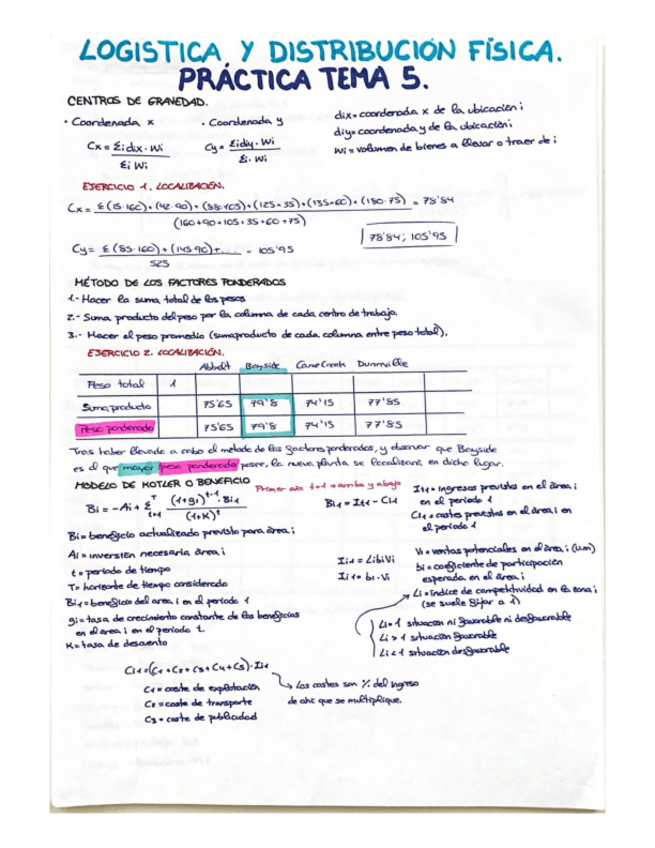 LOGISTICA Y DISTRIBUCIÓN FÍSICA.
PRÁCTICA TEMA 5.
CENTROS DE GRAVEDAD.
· Coordenada x
· Coordenada y
Cx = Σi dix · Wi / Σi Wi
Cy = Σi diy · Wi / Σi · Wi
dix = coordenada x de la ubicación i
diy = coordenada y de la ubicación i
Wi = volumen de bienes a llevar o traer de i
EJERCICIO 1. LOCALIZACIÓN.
Cx = Σ (15·160) + (42·90) + (88·105) + (125·35) + (135·60) + (180·75) / (160+90+105+35+60+75) = 78'84
Cy = Σ (85·160) + (145·90) + ... / 525 = 105'95
78'84; 105'95
MÉTODO DE LOS FACTORES PONDERADOS
1.- Hacer la suma total de los pesos
2.- Suma producto del peso por la columna de cada centro de trabajo.
3.- Hacer el peso promedio (sumaproducto de cada columna entre peso total).
EJERCICIO 2. LOCALIZACIÓN.
Bayside
Peso total 1
Suma producto 75'65 79'8 74'15 77'85
Peso ponderado 75'65 79'8 74'15 77'85
Tras haber llevado a cabo el método de los factores ponderados, y observar que Bayside
es el que mayor peso ponderado posee, la nueva planta se localizará en dicho lugar.
MODELO DE KOTLER O BENEFICIO
Primer año t=1 → arriba y abajo
Bi = -Ai + Σ (1+gi)^t-1 · Bi1 / (1+K)^t
Bi1 = Ii1 - Ci1
Ii1 = ingresos previstos en el área i
en el periodo 1
Ci1 = costes previstos en el área i en
el periodo 1
Bi = beneficio actualizado previsto para área i
Ai = inversión necesaria área i
t = periodo de tiempo
T = horizonte de tiempo considerado
Bi1 = beneficio del area i en el periodo 1
gi = tasa de crecimiento constante de los beneficios
en el area i en el periodo t.
K = tasa de descuento
Ii1 = LibiVi
Ii1 = bi·Vi
Vi = ventas potenciales en el área i (u.m)
bi = coeficiente de participación
esperada en el área i
Li = índice de competitividad en la zona i
(se suele fijar a 1)
Li = 1 situación ni favorable ni desfavorable
Li > 1 situación favorable
Li < 1 situación desfavorable
Ci1 = (C1 + C2 + C3 + C4 + C5) · Ii1
C1 = coste de explotación
C2 = coste de transporte
C3 = coste de publicidad
→ Los costes son % del ingreso
de ahí que se multiplique.